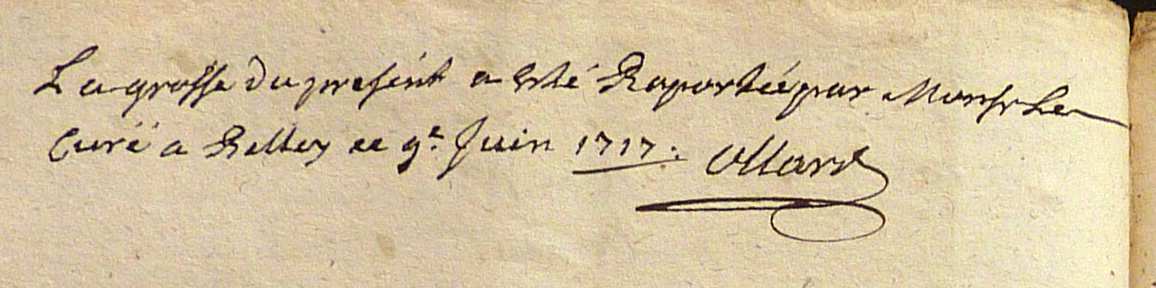 La grosse du present a esté Raportée par Monsr Le
Curé a Belley ce 9e Juin 1717. Ollard